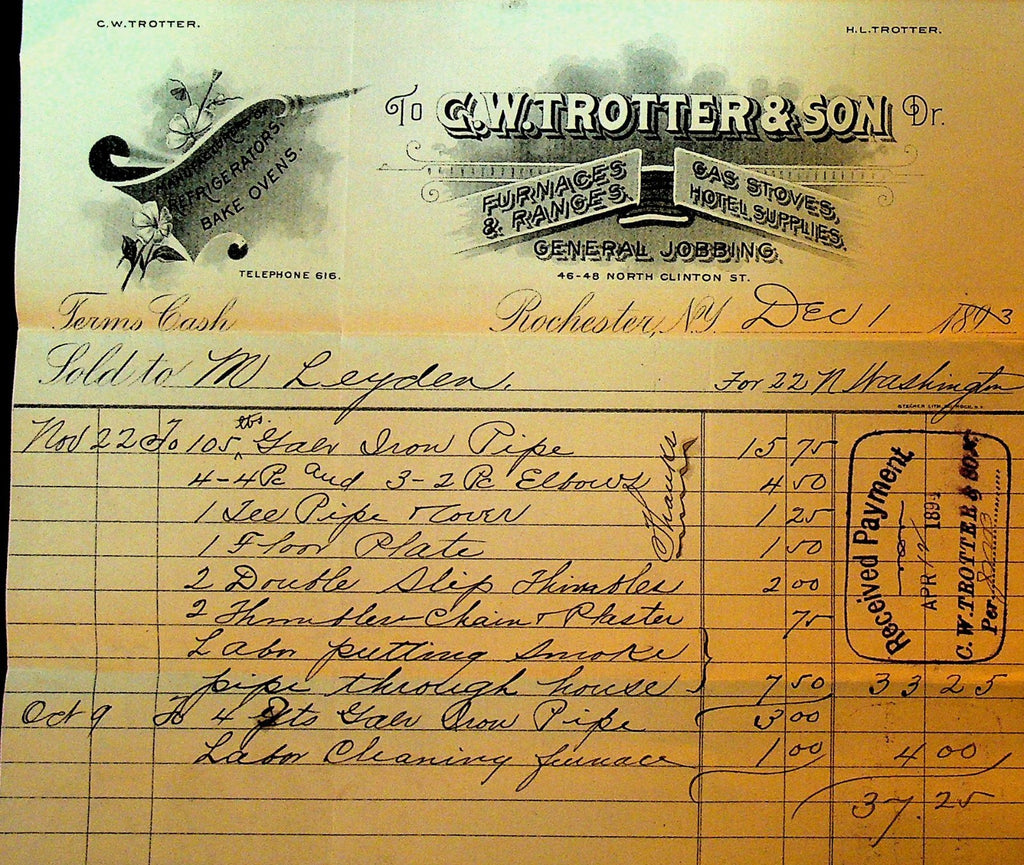 C.W. TROTTER.
H.L. TROTTER.
MANUFACTURERS OF
REFRIGERATORS,
BAKE OVENS.
TELEPHONE 616.
To C.W. TROTTER & SON Dr.
FURNACES & RANGES,
GAS STOVES, HOTEL SUPPLIES,
GENERAL JOBBING.
46-48 NORTH CLINTON ST.
Terms Cash
Rochester, N.Y. Dec 1 1893
Sold to M Leyden.
For 22 N Washington
STECHER LITH. CO. ROCH. N.Y.
Nov 22 To 105 lbs. Galv Iron Pipe 15 75
4-4 Pc and 3-2 Pc Elbows 4 50
1 Tee Pipe & Cover 1 25
1 Floor Plate 1 50
2 Double Slip Thimbles 2 00
2 Thimbles Chain & Plaster 75
Labor putting smoke
pipe through house 7 50 33 25
Oct 9 To 4 Galv Iron Pipe 3 00
Labor Cleaning furnace 1 00 4 00
37.25
Thanks
Received Payment
APR 12 1894
C. W. TROTTER & SON.
Per